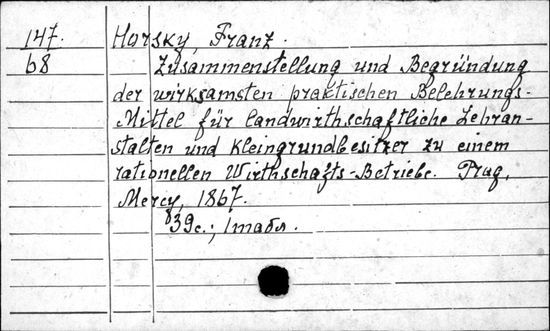 147. Horsky, Franz.
68 Zusammenstellung und Begründung
der wirksamsten praktischen Belehrungs-
Mittel für landwirthschaftliche Lehran-
stalten und Kleingrundbesitzer zu einem
rationellen Wirthschafts-Betriebe. Prag,
Mercy, 1867.
839c.; 1 табл.